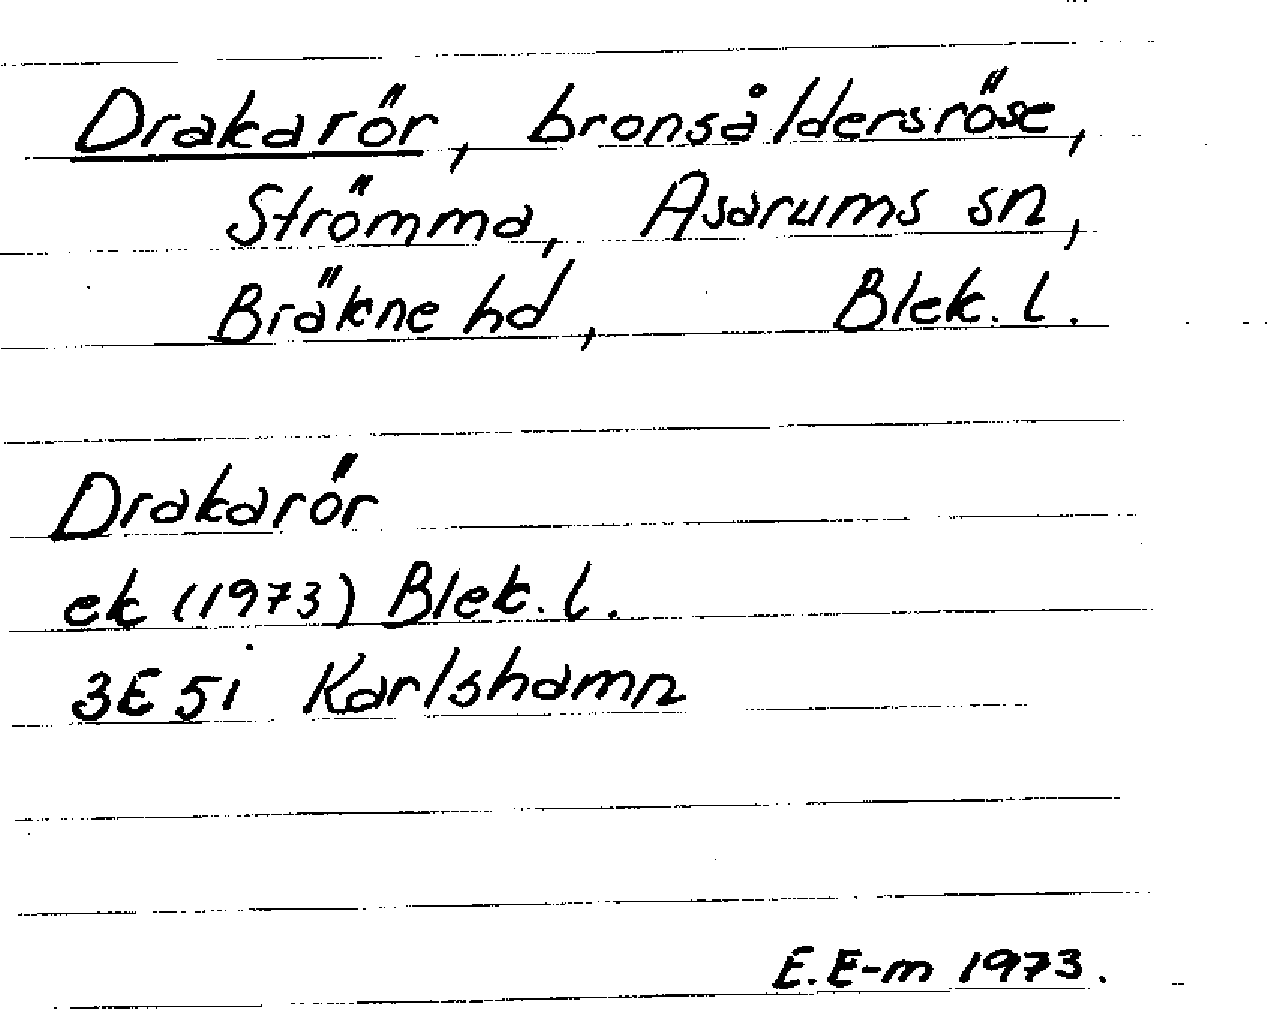 Drakarör, bronsåldersröse,
Strömma, Asarums sn,
Bräkne hd, Blek. l.
Drakarör
ek (1973) Blek. l.
3E 5i Karlshamn
E. E-m 1973.